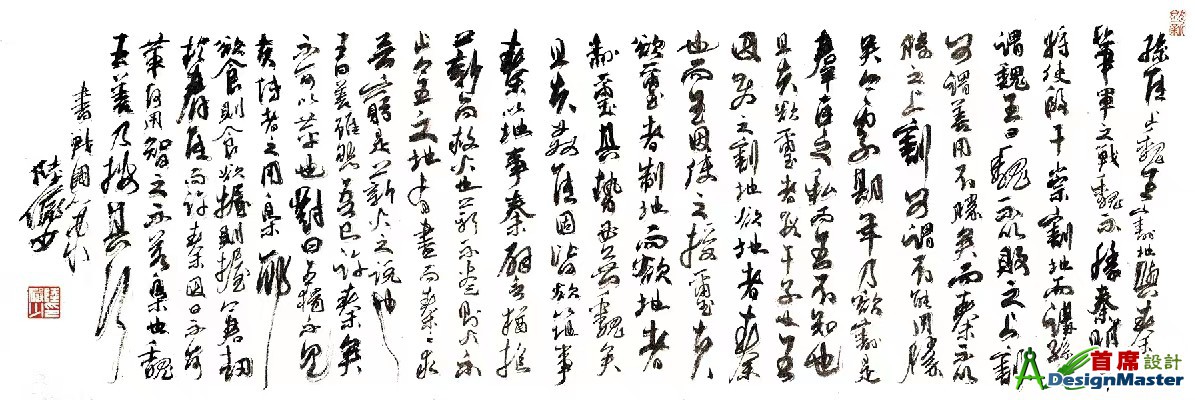 孫臣止魏王割地與秦
華軍之戰魏不勝秦明年
將使段干崇割地而講孫臣
謂魏王曰魏不以敗之上割
可謂善用不勝矣而秦不以
勝之上割可謂不能用勝
矣今處期年乃欲割是
羣臣之私而王不知也
且夫欲璽者段干子也王
因使之割地欲地者秦
也而王因使之授璽夫
欲璽者制地而欲地者
制璽其勢必無魏矣
且夫奸臣固皆欲以地事
秦以地事秦譬猶抱
薪而救火也薪不盡則火不
止今王之地有盡而秦之求
無窮是薪火之說也
王曰善雖然吾已許秦矣
不可以革也對曰王獨不見
夫博者之用梟邪
欲食則食欲握則握今君劫
於羣臣而許秦因曰不可
革何用智之不若梟也魏
王善乃按其行
書戰國
首席設計
DesignMaster